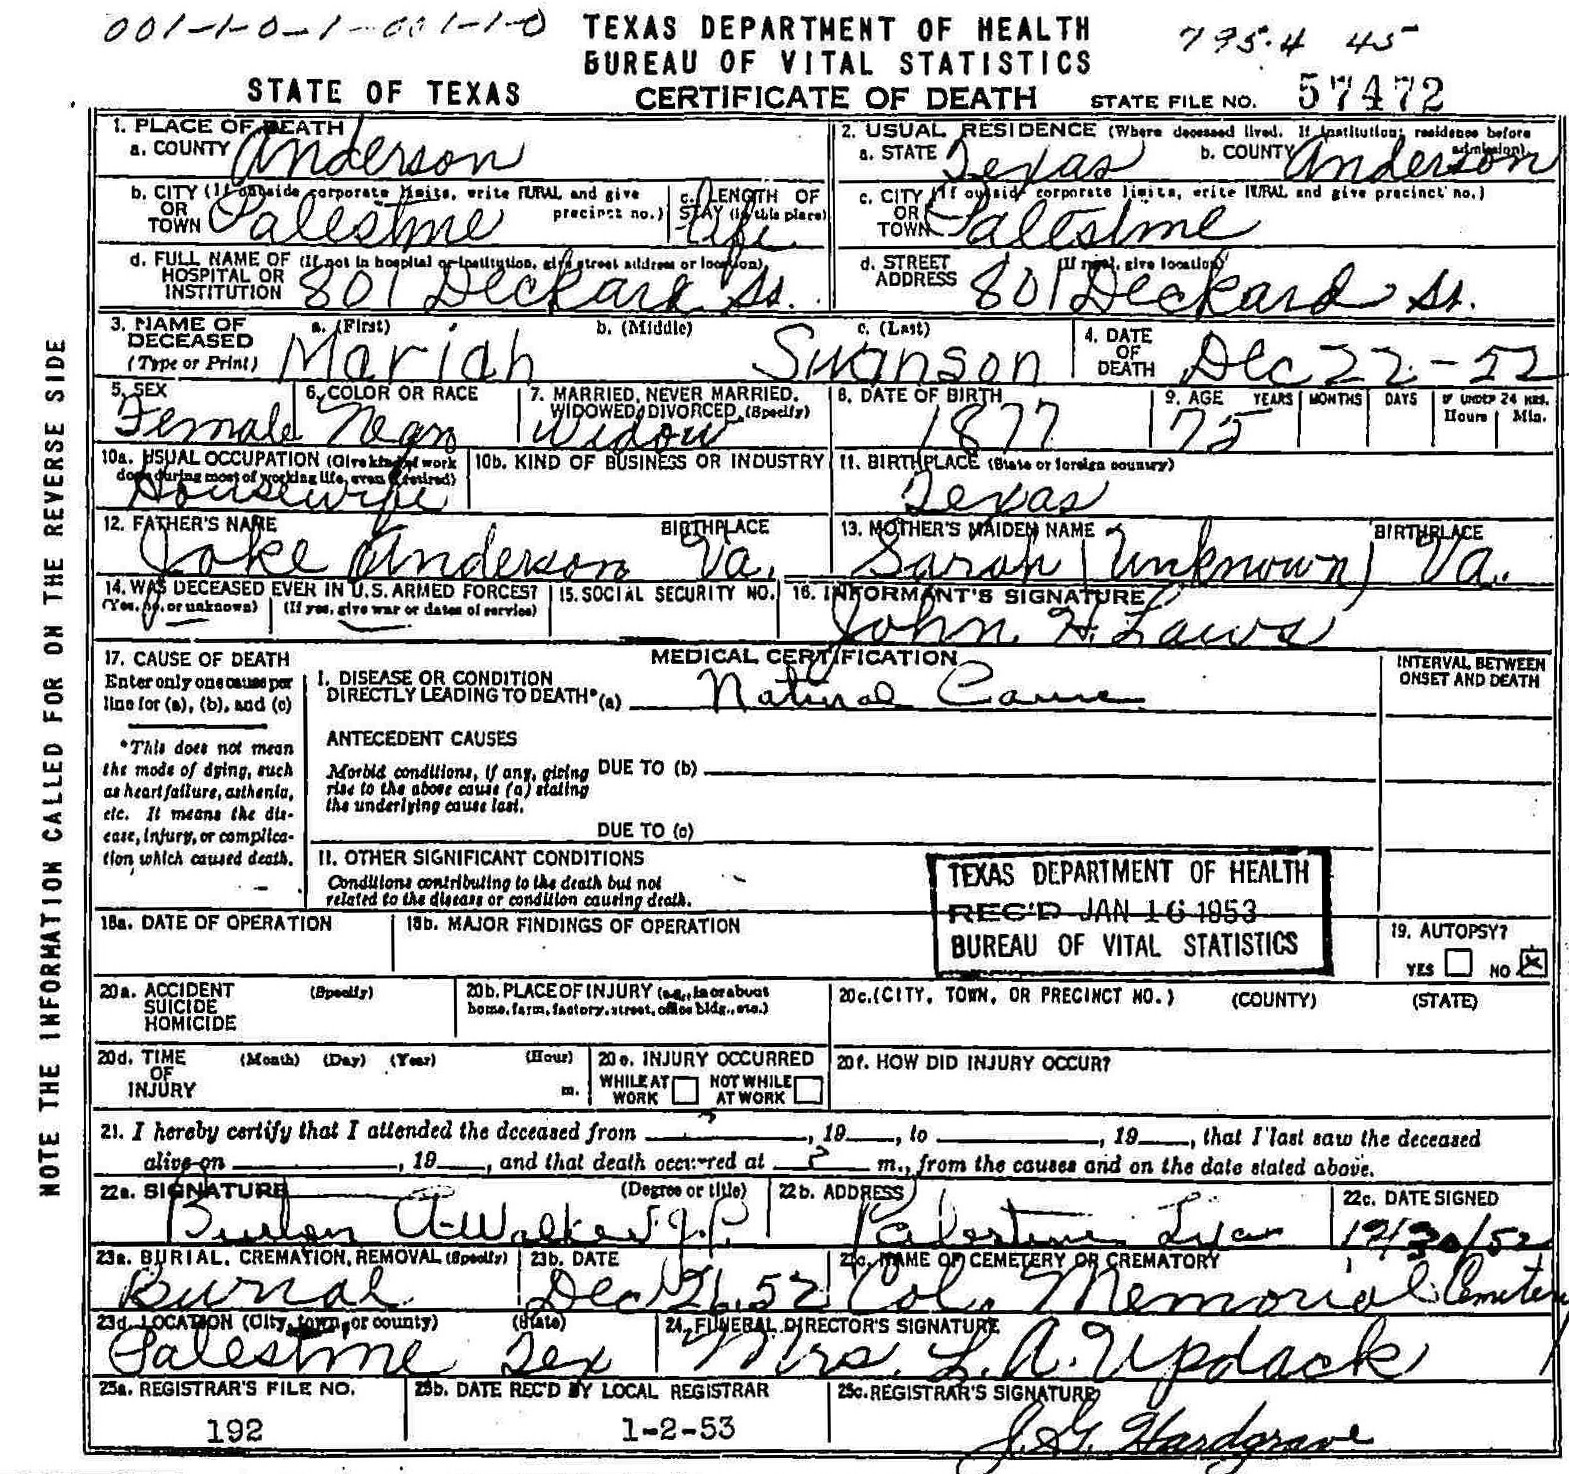 001-1-0-1-001-1-0 TEXAS DEPARTMENT OF HEALTH 795.4 45
BUREAU OF VITAL STATISTICS
STATE OF TEXAS CERTIFICATE OF DEATH STATE FILE NO. 57472
NOTE THE INFORMATION CALLED FOR ON THE REVERSE SIDE
1. PLACE OF DEATH
a. COUNTY Anderson
2. USUAL RESIDENCE (Where deceased lived. If institution; residence before admission)
a. STATE Texas b. COUNTY Anderson
b. CITY (If outside corporate limits, write RURAL and give precinct no.)
OR
TOWN Palestine
c. LENGTH OF
STAY (in this place)
Life
c. CITY (If outside corporate limits, write RURAL and give precinct no.)
OR
TOWN Palestine
d. FULL NAME OF (If not in hospital or institution, give street address or location)
HOSPITAL OR
INSTITUTION 801 Deckard St.
d. STREET (If rural, give location)
ADDRESS 801 Deckard St.
3. NAME OF DECEASED a. (First) b. (Middle) c. (Last)
(Type or Print) Mariah Swanson
4. DATE
OF
DEATH Dec 22-52
5. SEX
Female
6. COLOR OR RACE
Negro
7. MARRIED, NEVER MARRIED,
WIDOWED, DIVORCED (Specify)
Widow
8. DATE OF BIRTH
1877
9. AGE YEARS MONTHS DAYS IF UNDER 24 HRS.
Hours Min.
75
10a. USUAL OCCUPATION (Give kind of work
done during most of working life, even if retired)
Housewife
10b. KIND OF BUSINESS OR INDUSTRY
11. BIRTHPLACE (State or foreign country)
Texas
12. FATHER'S NAME BIRTHPLACE
Jake Anderson Va.
13. MOTHER'S MAIDEN NAME BIRTHPLACE
Sarah (Unknown) Va.
14. WAS DECEASED EVER IN U.S. ARMED FORCES?
(Yes, no, or unknown) (If yes, give war or dates of service)
15. SOCIAL SECURITY NO.
16. INFORMANT'S SIGNATURE
John H. Laws
17. CAUSE OF DEATH
Enter only one cause per
line for (a), (b), and (c)
*This does not mean
the mode of dying, such
as heart failure, asthenia,
etc. It means the dis-
ease, injury, or complica-
tion which caused death.
MEDICAL CERTIFICATION
INTERVAL BETWEEN
ONSET AND DEATH
I. DISEASE OR CONDITION
DIRECTLY LEADING TO DEATH* (a) Natural Cause
ANTECEDENT CAUSES
Morbid conditions, if any, giving DUE TO (b)
rise to the above cause (a) stating
the underlying cause last.
DUE TO (c)
II. OTHER SIGNIFICANT CONDITIONS
Conditions contributing to the death but not
related to the disease or condition causing death.
TEXAS DEPARTMENT OF HEALTH
REC'D JAN 16 1953
BUREAU OF VITAL STATISTICS
18a. DATE OF OPERATION
18b. MAJOR FINDINGS OF OPERATION
19. AUTOPSY?
YES NO X
20a. ACCIDENT (Specify)
SUICIDE
HOMICIDE
20b. PLACE OF INJURY (e.g., in or about
home, farm, factory, street, office bldg., etc.)
20c. (CITY, TOWN, OR PRECINCT NO.) (COUNTY) (STATE)
20d. TIME (Month) (Day) (Year) (Hour)
OF
INJURY m.
20e. INJURY OCCURRED
WHILE AT WORK NOT WHILE AT WORK
20f. HOW DID INJURY OCCUR?
21. I hereby certify that I attended the deceased from , 19 , to , 19 , that I last saw the deceased
alive on , 19 , and that death occurred at ? m., from the causes and on the date stated above.
22a. SIGNATURE (Degree or title)
A. Walker J.P.
22b. ADDRESS
Palestine
22c. DATE SIGNED
12/30/52
23a. BURIAL, CREMATION, REMOVAL (Specify)
Burial
23b. DATE
Dec 26, 52
23c. NAME OF CEMETERY OR CREMATORY
Col. Memorial Cemetery
23d. LOCATION (City, town, or county) (State)
Palestine Tex
24. FUNERAL DIRECTOR'S SIGNATURE
Mrs. L. A. Updack
25a. REGISTRAR'S FILE NO.
192
25b. DATE REC'D BY LOCAL REGISTRAR
1-2-53
25c. REGISTRAR'S SIGNATURE
J. G. Hardgrave